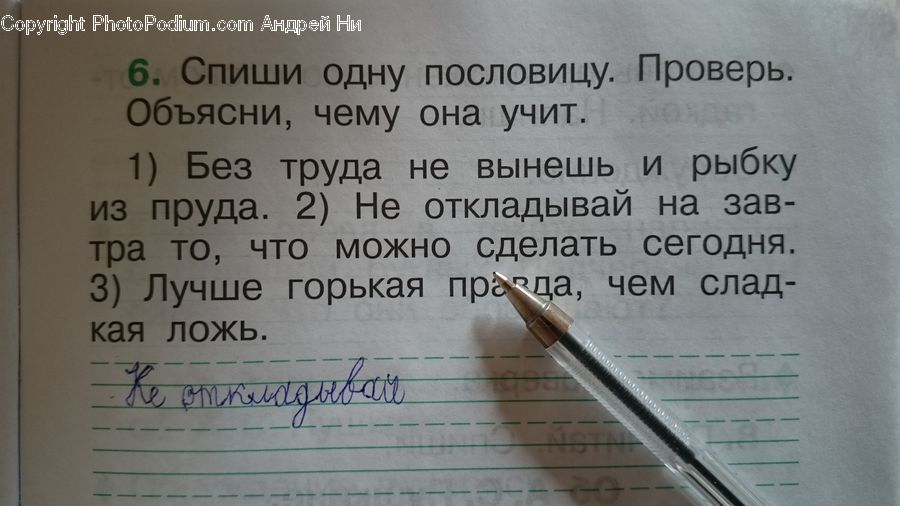 Copyright PhotoPodium.com Андрей Ни
6. Спиши одну пословицу. Проверь.
Объясни, чему она учит.
1) Без труда не вынешь и рыбку
из пруда. 2) Не откладывай на зав-
тра то, что можно сделать сегодня.
3) Лучше горькая правда, чем слад-
кая ложь.
Не откладывай